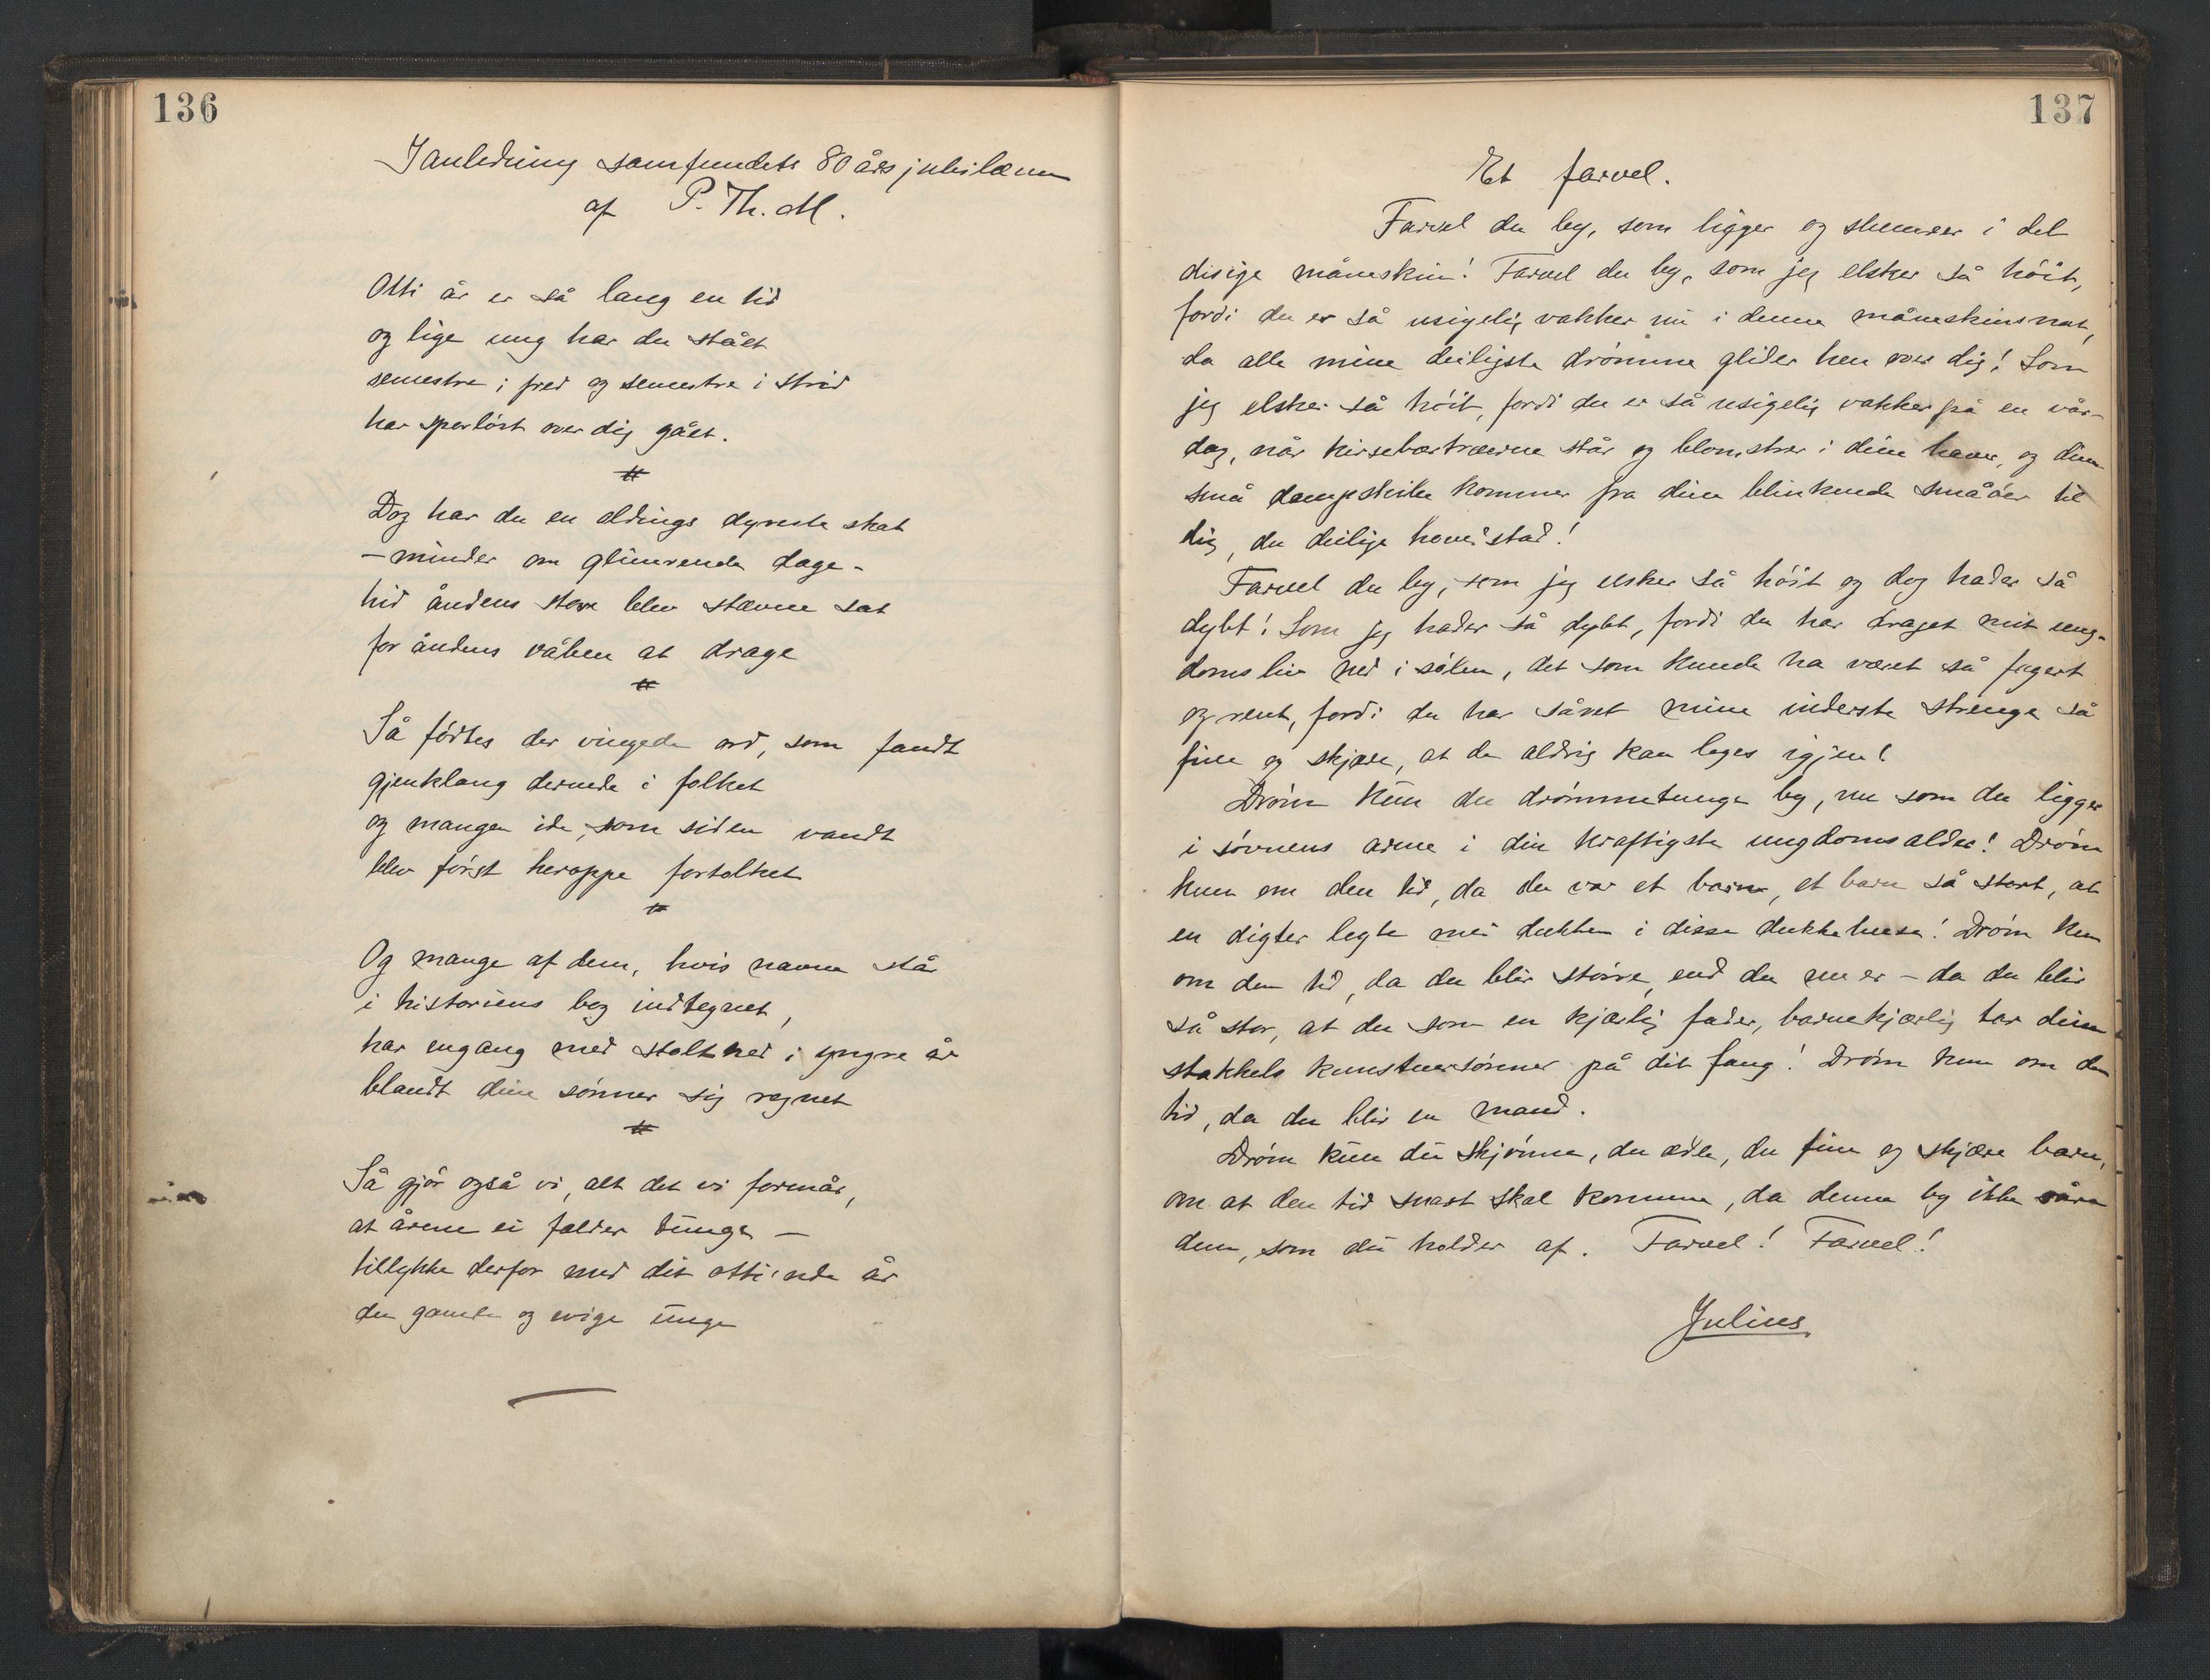 136
I anledning samfundets 80 års jubilæum
af P. Th. M.
Otti år er så lang en tid
og lige ung har du stået
semestre i fred og semestre i strid
har sporløst over dig gået.
Dog har du en oldings dyreste skat
– minder om glimrende dage –
hid åndens store blev stævne sat
for åndens våben at drage
Så fødtes der vingede ord, som fandt
gjenklang dernede i folket
og mangen ide, som siden vandt
blev først heroppe fortolket
Og mange af dem, hvis navne står
i historiens bog indtegnet,
har engang med stolthed i yngre år
blandt dine sønner sig regnet
Så gjør også vi, alt det vi formår,
at årene ei falder tunge –
tillykke derfor med dit ottiende år
du gamle og evige unge
137
Et farvel.
Farvel du by, som ligger og slumrer i det
disige måneskin! Farvel du by, som jeg elsker så høit,
fordi du er så usigelig vakker nu i denne måneskinsnat,
da alle mine deiligste drømme glider hen over dig! Som
jeg elsker så høit, fordi du er så usigelig vakker på en vår-
dag, når kirsebærtræerne står og blomstrer i dine haver, og dine
små dampskibe kommer fra dine blinkende småøer til
dig, du deilige hovedstad!
Farvel du by, som jeg elsker så høit og dog hader så
dybt! Som jeg hader så dybt, fordi du har draget mit ung-
domsliv ned i sølen, det som kunde ha været så fagert
og rent, fordi du har såret mine inderste strenge så
fine og skjære, at de aldrig kan læges igjen!
Drøm kun du drømmetunge by, nu som du ligger
i søvnens arme i din kraftigste ungdomsalder! Drøm
kun om den tid, da du var et barn, et barn så stort, at
en digter legte med dukken i disse dukkehuse! Drøm kun
om den tid, da du blir større, end du nu er – da du blir
så stor, at du som en kjærlig fader, barnekjærlig tar dine
stakkels kunstnersønner på dit fang! Drøm kun om den
tid, da du blir en mand.
Drøm kun du skjønne, du ædle, du fine og skjære barn,
om at den tid snart skal komme, da denne by ikke såre
dem, som du holder af. Farvel! Farvel!
Julius